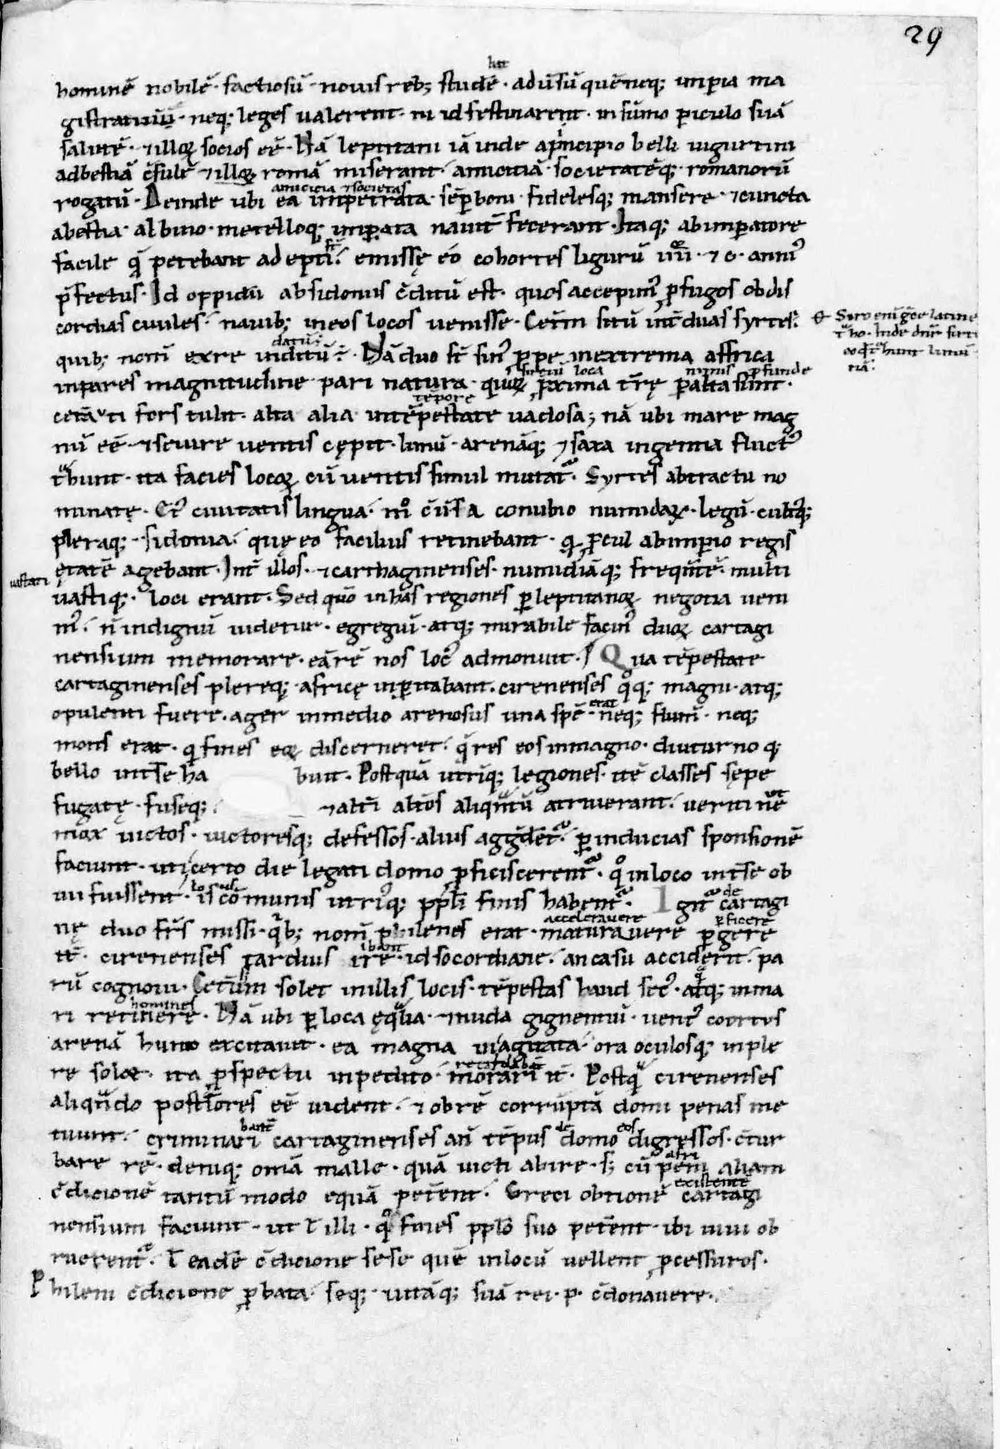 29
hominē nobilē · factiosū · nouis reb; studē · aduˉsū quē neq; impia ma
gistratuū · neq; leges ualerent · ni id festinarent · in sūmo periculo suā
salutē · & illoꝝ socios eē · Nā leptitani iā inde a principio belli iugurtini
ad bestiā c̄sulē & illoꝝ romā miserant · amicitiā · societatēq; romanorū
amicicia & societas
rogatū · Deinde ubi ea impetrata · sēp boni · fidelesq; mansere · & cuncta
a bestia · albino · metelloq; imperata nauit̄ fecerant · Itaq; ab imperatore
facile quē petebant adepti · emissę eo cohortes ligurū iiii · & c · anniꝰ
p̄fectus · Id oppidū ab sidoniis c̄ditū est · quos accepimꝰ profugos ob dis
cordias ciuiles · nauib; in eos locos uenisse · Cet̄m sitū int̄ duas syrtes ·
quib; nom̄ ex re inditū ē · Nā duo st̄ sinꝰ ꝑpe in extrema affrica
inpares magnitudine pari natura · quoꝝ proxima t̄rę peralta sunt ·
cet̄a uti fors tulit · alta alia in tēpestate uadosa; nā ubi mare mag
nū eē · & seuire uentis cępit · limū · arenāq; & saxa ingentia fluctꝰ
t̄hunt · ita facies locoꝝ cū uentis simul mutat̄ · Syrtes ab tractu no
minatę · Eiꝰ ciuitatis lingua · m̊ c̄uersa conubio numidaꝝ · legū · cultusq;
pleraq; · sidonia · quę eo facilius retinebant · q̄ procul ab imperio regis
ętatē agebant · Int̄ illos · & carthaginenses · numidiāq; frequentē · multi
uastiq; · loci erant · Sed quō in has regiones per leptitanoꝝ negotia ueni
mꝰ · n̄ indignū uidetur · egregiū · atq; mirabile facinꝰ duoꝝ cartagi
nensium memorare · eā rē nos locꝰ admonuit · Qua tēpestate
cartaginenses plereq; · africę inperitabant · cirenenses quoq; magni · atq;
opulenti fuere · ager in medio arenosus una spē̄ · neq; flum̄ · neq;
mons erat · qui fines eoꝝ discerneret · q̄ res eos in magno · diuturnoq;
bello int̄ se ha bunt · Postquā utriq; legiones · itē classes sępe
fugatę · fuseq; & alt̄i alt̄os aliquantū atriuerant · ueriti nē
mox uictos · uictoresq; defessos · alius aggrederet̄ · per inducias sponsionē
faciunt · uti certo die legati domo proficiscerent̄ · quo in loco int̄ se ob
uii fuissent · is cōmunis utriq; ppl̄i finis haberet̄ · Igit̄ cartagi
nę duo fr̄s missi · quib; nom̄ philenes erat · maturauere pergere
it̄ · cirenenses tardius ire · id socordiane · an casu acciderit · pa
rū cognoui · Cet̄um solet in illis locis · tēpestas haud secꝰ · atq; in ma
homines
ri retinere · Nā ubi per loca ęqualia · & nuda gignentiū · uentꝰ coortus
arenā humo excitauit · ea magna ui agitata · ora oculosq; inple
re solet · ita prospectu inpedito · morari it̄ · Postquā cirenenses
aliquando posteriores eē uident · & ob rē corruptā domi penas me
tuunt · criminari cartaginenses an̄ tēpus domo digressos · c̄tur
bare rē · deniq; om̄a malle · quā uicti abire · s; cū peni aliam
c̄dicionē tantū modo equā pet̄ent · Greci obtionē cartagi
nensium faciunt · ut l̄ illi · quos fines ppl̄o suo pet̄ent · ibi uiui ob
ruerent̄ · l̄ eadē c̄dicione sese quē in locū uellent processuros ·
Phileni c̄dicione probata · seq; · uitāq; suā rei · p · c̄donauere ·